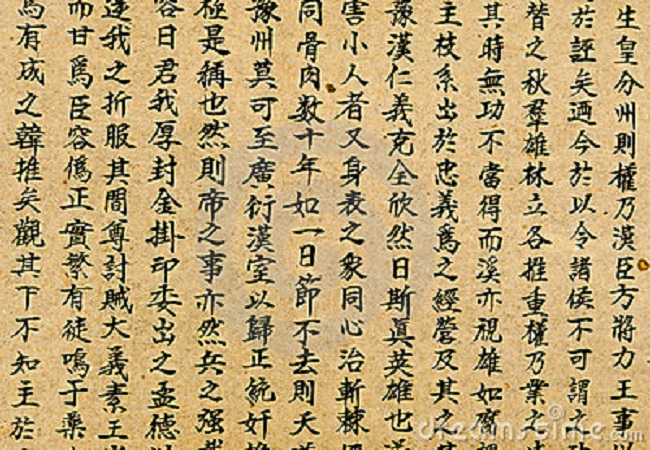 生皇分州則權乃漢臣方將力王事以
於誣矣迺今於以令諸侯不可謂之
替之秋羣雄林立各推重權乃業之
其時無功不當得而溪亦視雄如腐
主枝系出於忠義為之經營及其之
豫漢仁義充全欣然日斯真英雄也
害小人者又身表之衆同心治斬棘
同骨肉数十年如一日節不去則天
豫州莫可至廣衍漢室以歸正統奸
極是稱也然則帝之事亦然兵之强
容日君我厚封金掛印委出之孟德
達我之折服其間尊討賊大義素王
而甘為臣容僞正實繁有徒鳴于藥
馬有成之韓推矣觀其下不知主於
dreamstime.com